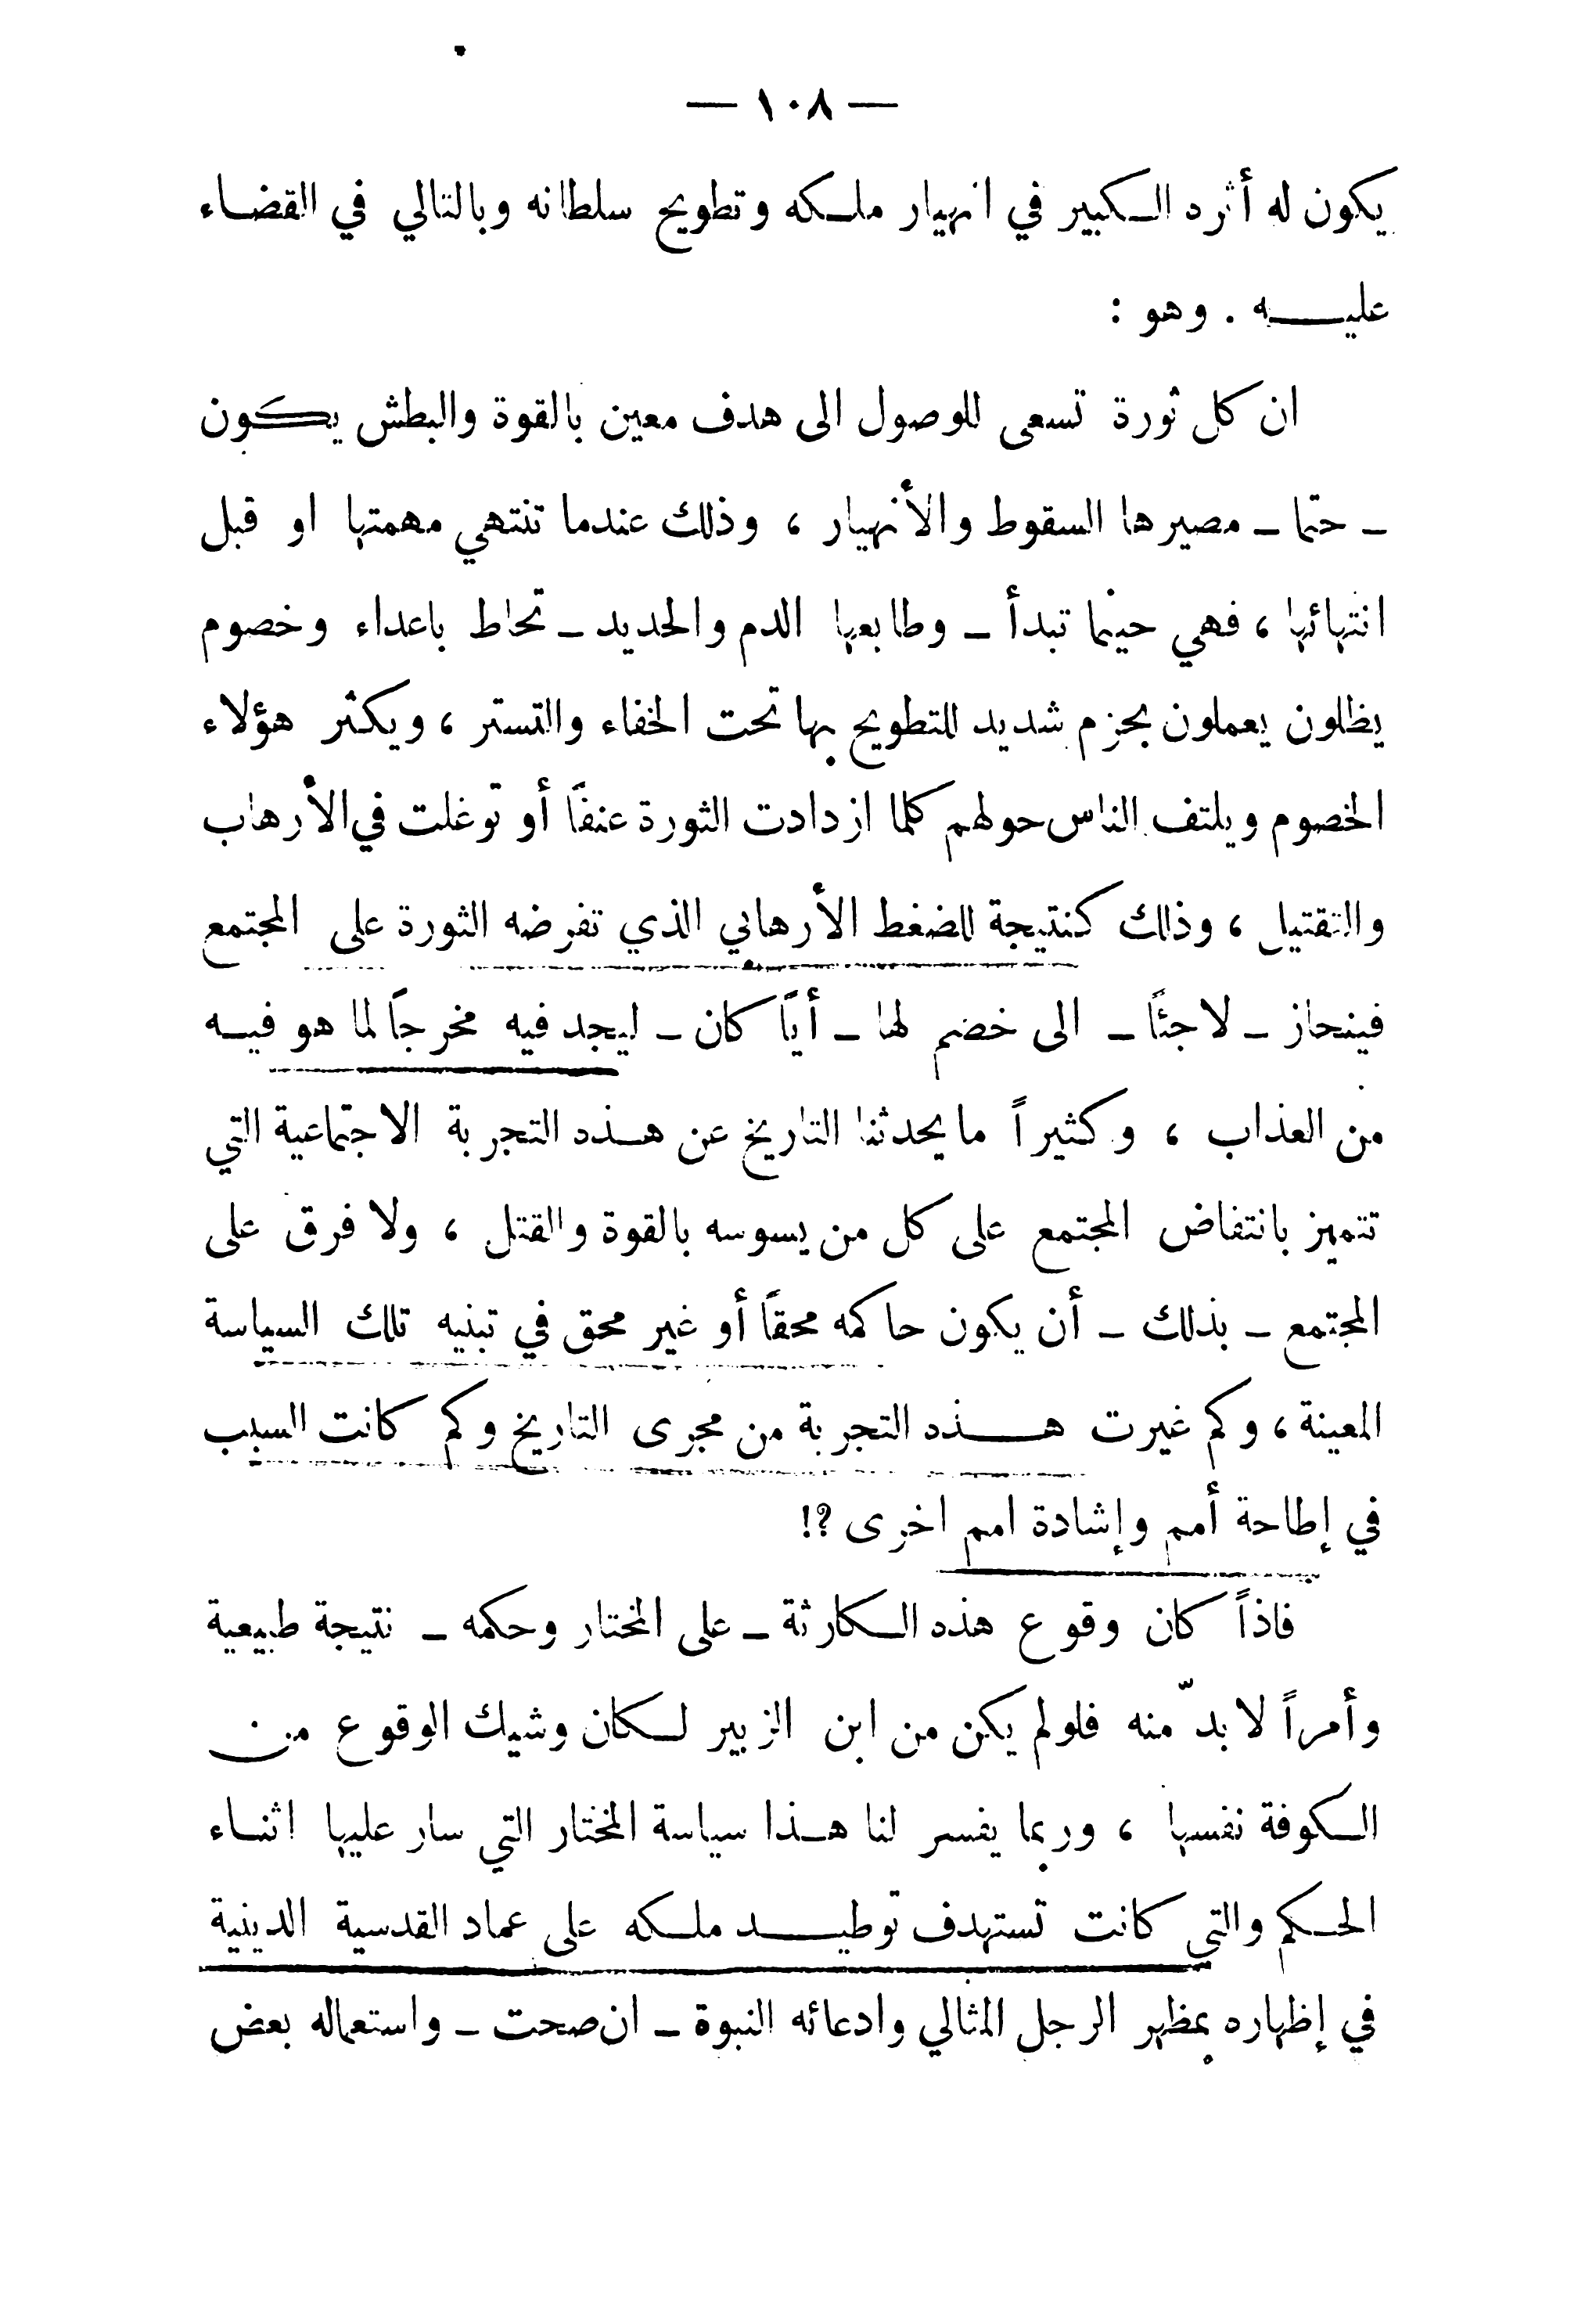 — ١٠٨ —
يكون له أثره الكبير في انهيار ملكه وتطويح سلطانه وبالتالي في القضاء
عليه . وهو :
ان كل ثورة تسعى للوصول الى هدف معين بالقوة والبطش يكون
ـ حتما ـ مصيرها السقوط والأنهيار ، وذلك عندما تنتهي مهمتها او قبل
انتهائها ، فهي حينما تبدأ ـ وطابعها الدم والحديد ـ تحاط باعداء وخصوم
يظلون يعملون بحزم شديد للتطويح بها تحت الخفاء والتستر ، ويكثر هؤلاء
الخصوم ويلتف الناس حولهم كلما ازدادت الثورة عنفًا أو توغلت في الأرهاب
والتقتيل ، وذلك كنتيجة للضغط الأرهابي الذي تفرضه الثورة على المجتمع
فينحاز ـ لاجئًا ـ الى خضم لها ـ أيًا كان ـ ليجد فيه مخرجًا لما هو فيه
من العذاب ، وكثيراً ما يحدثنا التاريخ عن هذه التجربة الاجتماعية التي
تتميز بانتفاض المجتمع على كل من يسوسه بالقوة والقتل ، ولا فرق على
المجتمع ـ بذلك ـ أن يكون حاكمه محقًا أو غير محق في تبنيه تلك السياسة
المعينة ، وكم غيرت هذه التجربة من مجرى التاريخ وكم كانت السبب
في إطاحة أمم وإشادة امم اخرى ؟!
فاذاً كان وقوع هذه الكارثة ـ على المختار وحكمه ـ نتيجة طبيعية
وأمراً لابدّ منه فلولم يكن من ابن الزبير لكان وشيك الوقوع من
الكوفة نفسها ، وربما يفسر لنا هذا سياسة المختار التي سار عليها اثناء
الحكم والتي كانت تستهدف توطيد ملكه على عماد القدسية الدينية
في إظهاره بمظهر الرجل المثالي وادعائه النبوة ـ ان صحت ـ واستعماله بعض